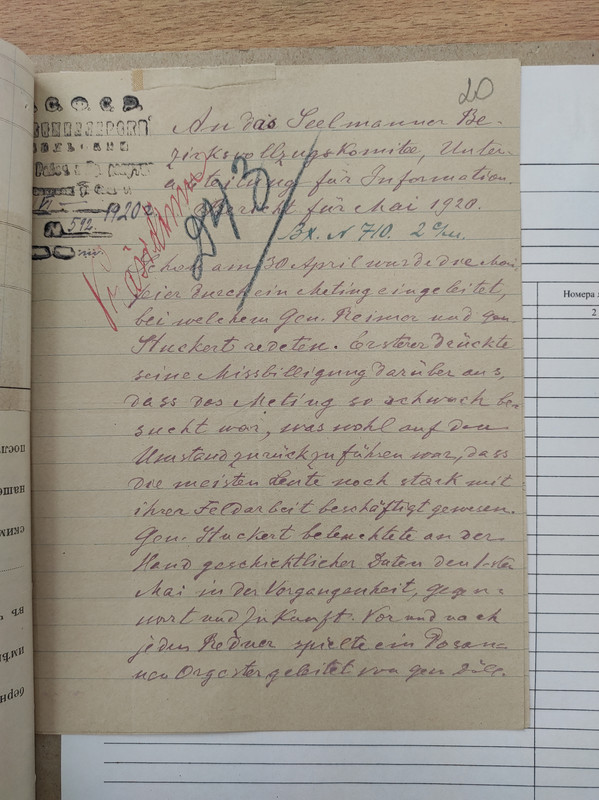 20
Р.С.Ф.С.Р.
1920 г.
№ 592
An das Seelmanner Be-
zirksvollzugskomitee, Unter-
abteilung für Information.
Bericht für Mai 1920.
Вх. N 710. 2 с/м.
943
Schon am 30 April wurde die Mai,
feier durch ein Meting eingeleitet,
bei welchem Gen. Reimer und gen.
Huckert redeten. Ersterer drückte
seine Missbilligung darüber aus,
dass das Meting so schwach be-
sucht war, was wohl auf den
Umstand zurückzuführen war, dass
die meisten Leute noch stark mit
ihrer Feldarbeit beschäftigt gewesen.
Gen. Huckert beleuchtete an der
Hand geschichtlicher Daten den 1-sten
Mai in der Vorgangenheit, Gegen-
wart und Zukunft. Vor und nach
jedem Redner spielte ein Posau-
nen Orgester geleitet von gen. Döll.
Номера
2
посл
наше
ским
въ
имѣ
берн